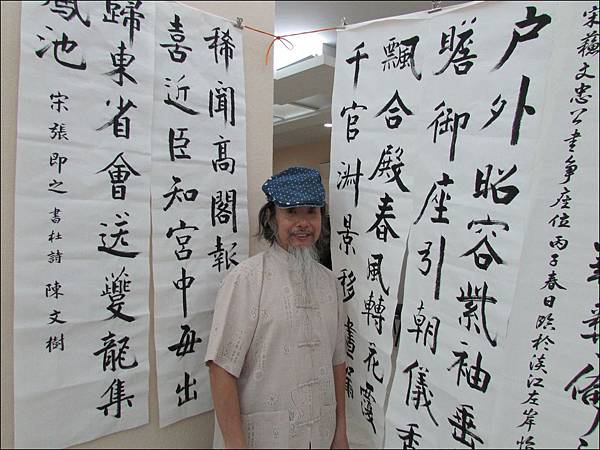 宋蘇文忠公書爭座位丙子春日臨於淡江左岸怡
户外昭容紫袖垂
瞻御座引朝儀香
飄合殿春風轉花覆
千官淑景移晝漏
稀聞高閣報
喜近臣知宮中每出
歸東省會送夔龍集
鳳池
宋張即之書杜詩 陳文樹